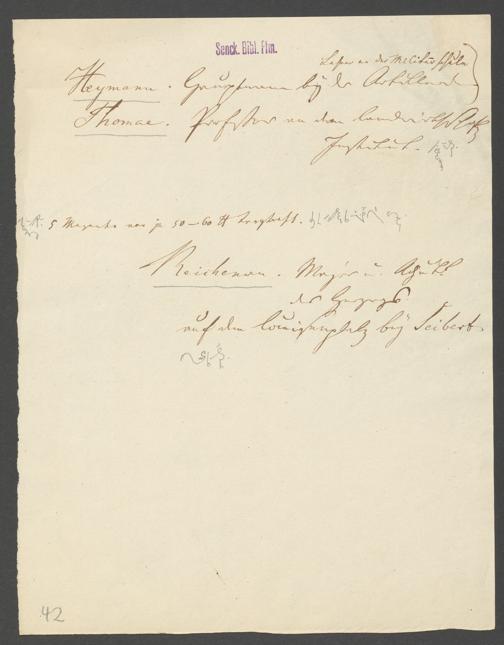 Senck. Bibl. Ffm.
Lehrer an der Militärschule
Heymann. Hauptmann bey der Artillerie
Thomae. Professor an dem landwirthschaftl.
Institut.
5 Magnete von je 50–60 ℔ Tragkraft.
Reichenau. Major u. Adjut.
des Herzogs.
auf dem Louisenplatz bey Seibert.
42